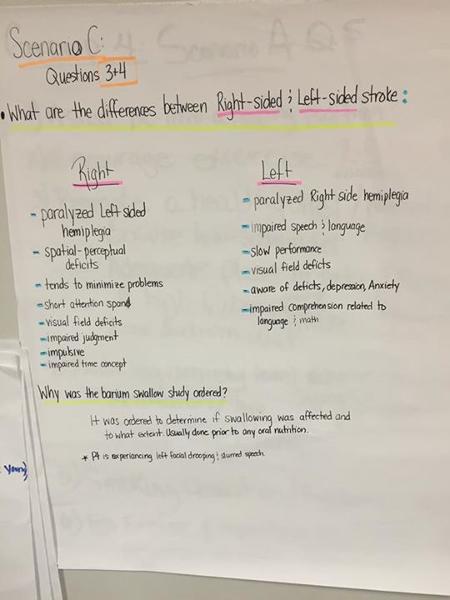 Scenario C:
Questions 3+4
• What are the differences between Right-sided & Left-sided stroke:
Right
- paralyzed Left sided
hemiplegia
- spatial-perceptual
deficits
- tends to minimize problems
- short attention spand
- visual field deficits
- impaired judgment
- impulsive
- impaired time concept
Left
- paralyzed Right side hemiplegia
- impaired speech & language
- slow performance
- visual field deficts
- aware of deficits, depression, Anxiety
- impaired comprehension related to
language & math
Why was the barium swallow study ordered?
It was ordered to determine if swallowing was affected and
to what extent. Usually done prior to any oral nutrition.
* Pt is experiancing left facial drooping & slurred speech.